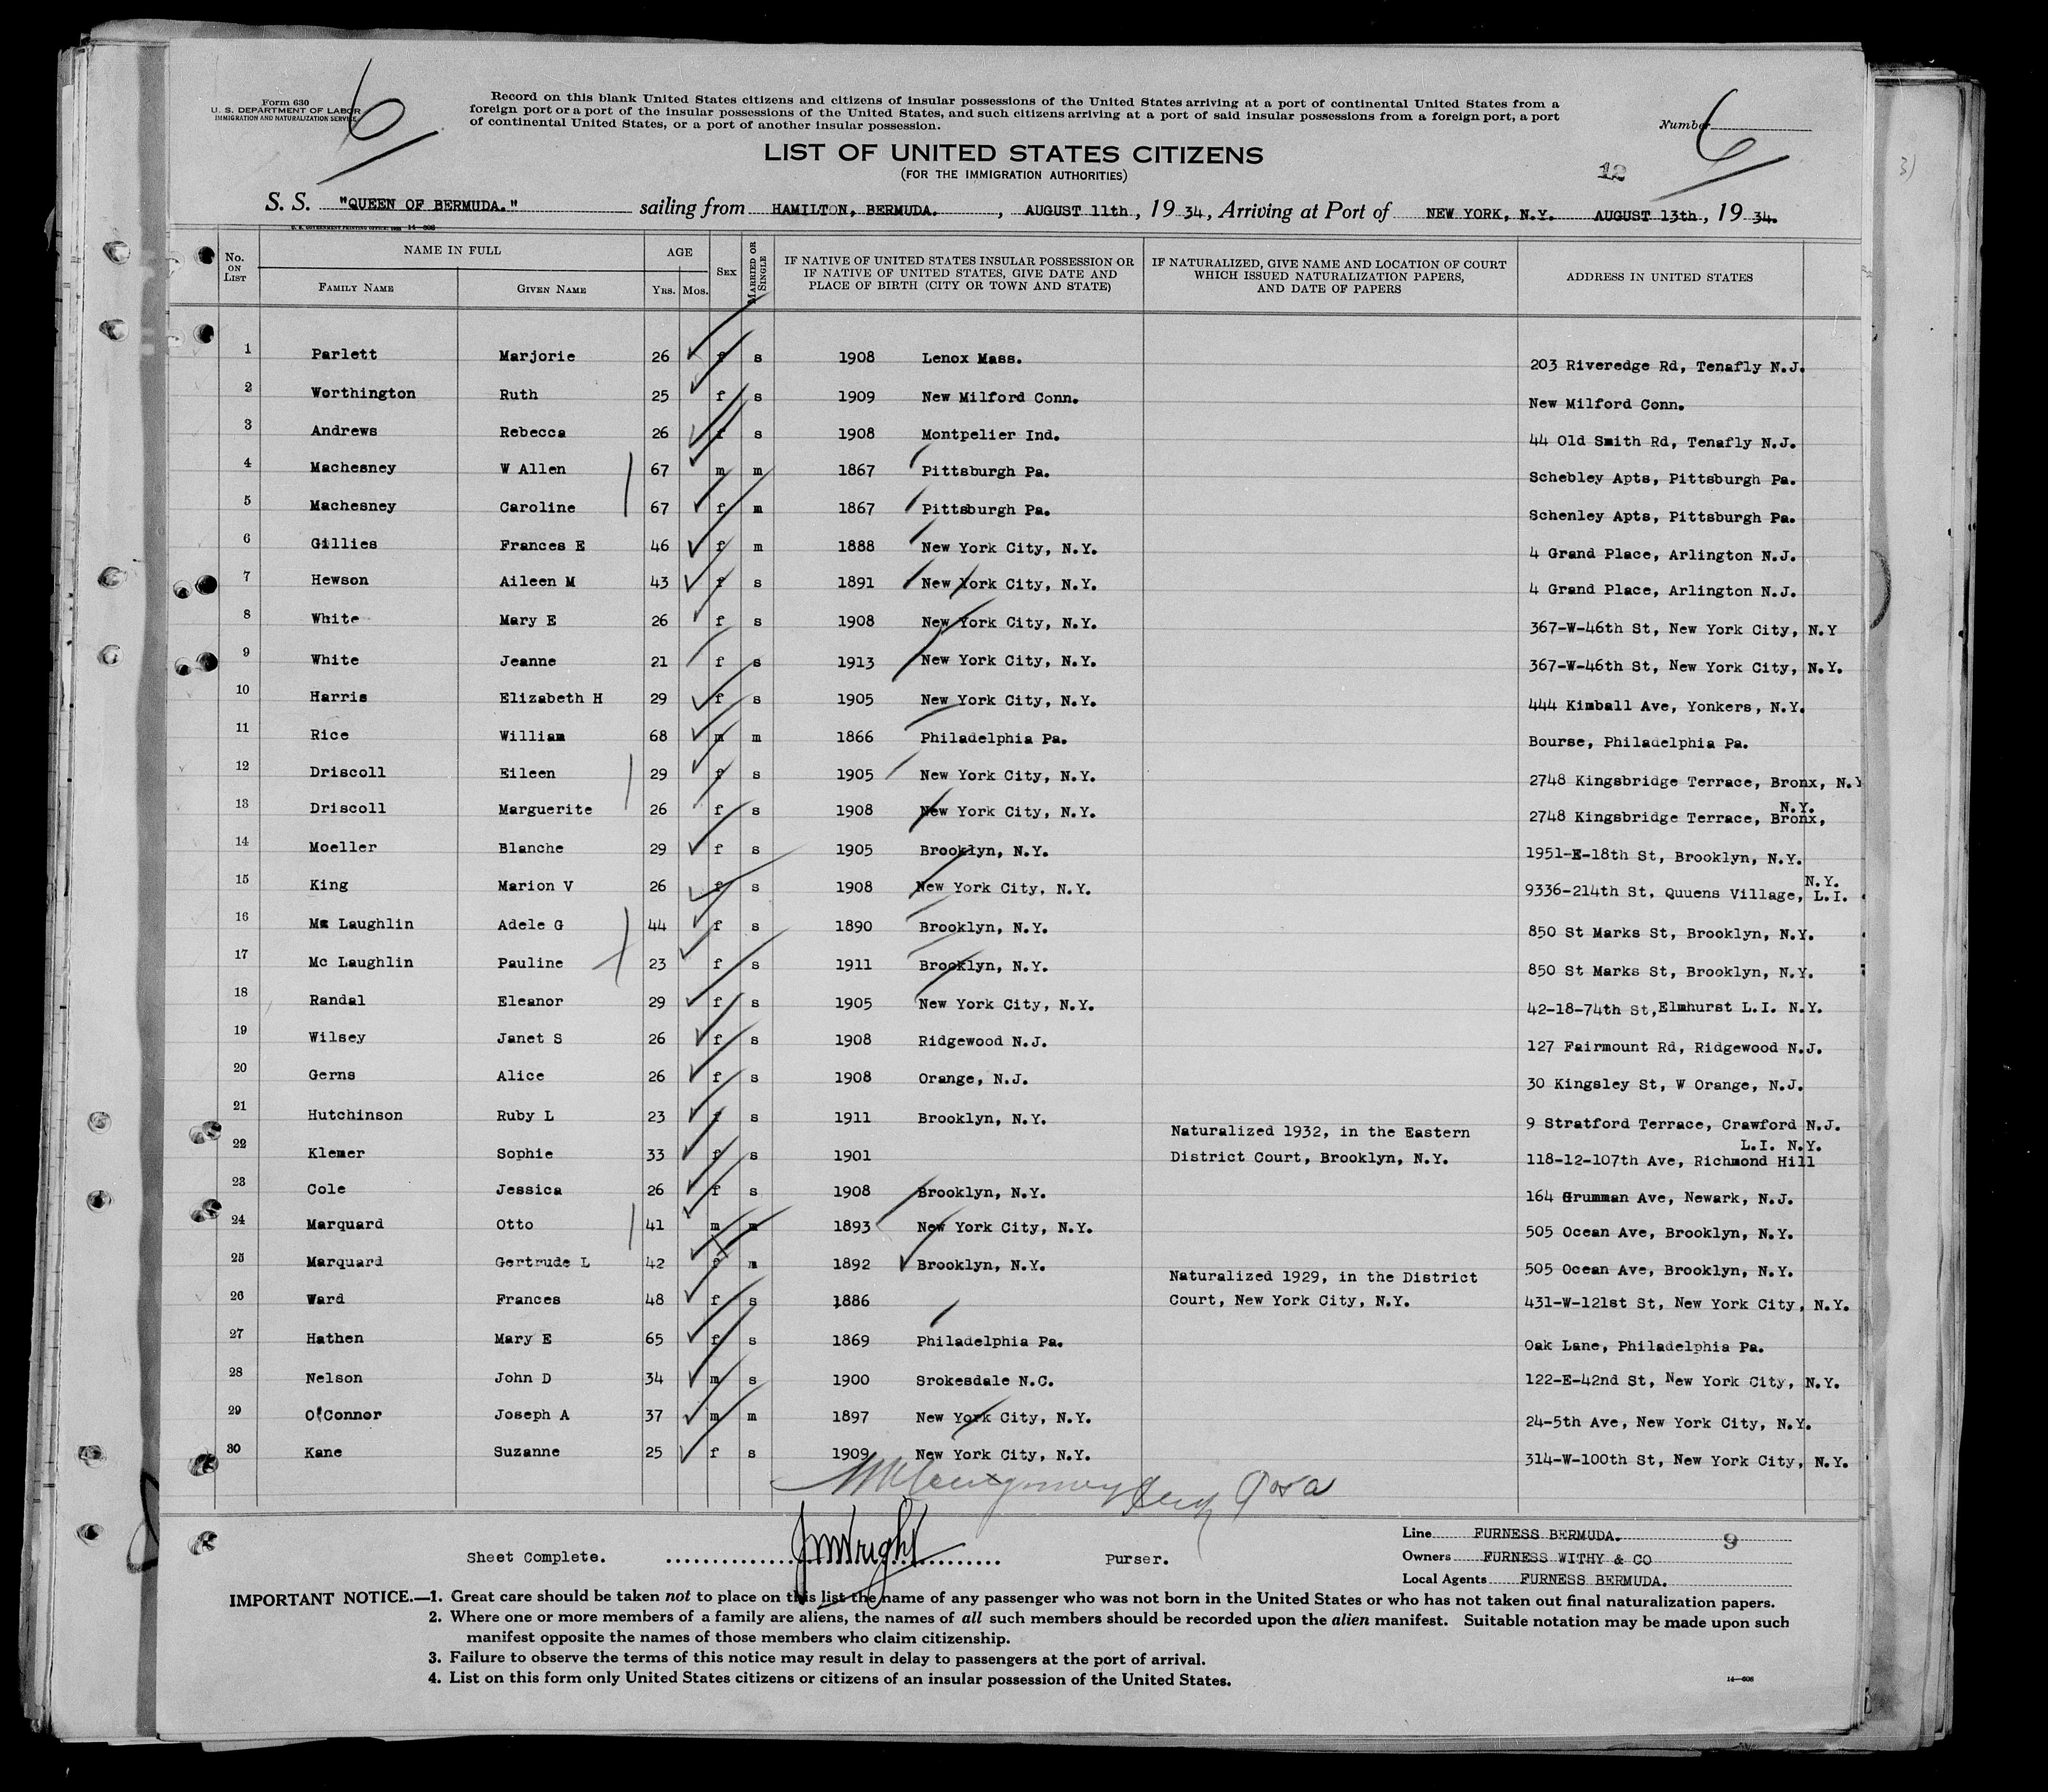 Form 630
U. S. DEPARTMENT OF LABOR
IMMIGRATION AND NATURALIZATION SERVICE
6
Record on this blank United States citizens and citizens of insular possessions of the United States arriving at a port of continental United States from a
foreign port or a port of the insular possessions of the United States, and such citizens arriving at a port of said insular possessions from a foreign port, a port
of continental United States, or a port of another insular possession.
Number 6
LIST OF UNITED STATES CITIZENS
(FOR THE IMMIGRATION AUTHORITIES)
12
S. S. "QUEEN OF BERMUDA." sailing from HAMILTON, BERMUDA. , AUGUST 11th , 19 34, Arriving at Port of NEW YORK, N.Y. AUGUST 13th , 19 34.
No. ON LIST NAME IN FULL FAMILY NAME GIVEN NAME AGE YRS. MOS. SEX MARRIED OR SINGLE IF NATIVE OF UNITED STATES INSULAR POSSESSION OR IF NATIVE OF UNITED STATES, GIVE DATE AND PLACE OF BIRTH (CITY OR TOWN AND STATE) IF NATURALIZED, GIVE NAME AND LOCATION OF COURT WHICH ISSUED NATURALIZATION PAPERS, AND DATE OF PAPERS ADDRESS IN UNITED STATES
1 Parlett Marjorie 26 f s 1908 Lenox Mass. 203 Riveredge Rd, Tenafly N.J.
2 Worthington Ruth 25 f s 1909 New Milford Conn. New Milford Conn.
3 Andrews Rebecca 26 f s 1908 Montpelier Ind. 44 Old Smith Rd, Tenafly N.J.
4 Machesney W Allen 67 m m 1867 Pittsburgh Pa. Schebley Apts, Pittsburgh Pa.
5 Machesney Caroline 67 f m 1867 Pittsburgh Pa. Schenley Apts, Pittsburgh Pa.
6 Gillies Frances E 46 f m 1888 New York City, N.Y. 4 Grand Place, Arlington N.J.
7 Hewson Aileen M 43 f s 1891 New York City, N.Y. 4 Grand Place, Arlington N.J.
8 White Mary E 26 f s 1908 New York City, N.Y. 367-W-46th St, New York City, N.Y
9 White Jeanne 21 f s 1913 New York City, N.Y. 367-W-46th St, New York City, N.Y.
10 Harris Elizabeth H 29 f s 1905 New York City, N.Y. 444 Kimball Ave, Yonkers, N.Y.
11 Rice William 68 m m 1866 Philadelphia Pa. Bourse, Philadelphia Pa.
12 Driscoll Eileen 29 f s 1905 New York City, N.Y. 2748 Kingsbridge Terrace, Bronx, N.Y
13 Driscoll Marguerite 26 f s 1908 New York City, N.Y. 2748 Kingsbridge Terrace, Bronx, N.Y.
14 Moeller Blanche 29 f s 1905 Brooklyn, N.Y. 1951-E-18th St, Brooklyn, N.Y.
15 King Marion V 26 f s 1908 New York City, N.Y. 9336-214th St, Quuens Village, L.I. N.Y.
16 Mc Laughlin Adele G 44 f s 1890 Brooklyn, N.Y. 850 St Marks St, Brooklyn, N.Y.
17 Mc Laughlin Pauline 23 f s 1911 Brooklyn, N.Y. 850 St Marks St, Brooklyn, N.Y.
18 Randal Eleanor 29 f s 1905 New York City, N.Y. 42-18-74th St, Elmhurst L.I. N.Y.
19 Wilsey Janet S 26 f s 1908 Ridgewood N.J. 127 Fairmount Rd, Ridgewood N.J.
20 Gerns Alice 26 f s 1908 Orange, N.J. 30 Kingsley St, W Orange, N.J.
21 Hutchinson Ruby L 23 f s 1911 Brooklyn, N.Y. 9 Stratford Terrace, Crawford N.J.
22 Klemer Sophie 33 f s 1901 Naturalized 1932, in the Eastern District Court, Brooklyn, N.Y. 118-12-107th Ave, Richmond Hill L.I. N.Y.
23 Cole Jessica 26 f s 1908 Brooklyn, N.Y. 164 Grumman Ave, Newark, N.J.
24 Marquard Otto 41 m m 1893 New York City, N.Y. 505 Ocean Ave, Brooklyn, N.Y.
25 Marquard Gertrude L 42 f m 1892 Brooklyn, N.Y. 505 Ocean Ave, Brooklyn, N.Y.
26 Ward Frances 48 f s 1886 Naturalized 1929, in the District Court, New York City, N.Y. 431-W-121st St, New York City, N.Y.
27 Hathen Mary E 65 f s 1869 Philadelphia Pa. Oak Lane, Philadelphia Pa.
28 Nelson John D 34 m s 1900 Srokesdale N.C. 122-E-42nd St, New York City, N.Y.
29 O'Connor Joseph A 37 m m 1897 New York City, N.Y. 24-5th Ave, New York City, N.Y.
30 Kane Suzanne 25 f s 1909 New York City, N.Y. 314-W-100th St, New York City, N.Y.
Sheet Complete. JWWright Purser.
Line FURNESS BERMUDA. 9
Owners FURNESS WITHY & CO
Local Agents FURNESS BERMUDA.
IMPORTANT NOTICE.—1. Great care should be taken not to place on this list the name of any passenger who was not born in the United States or who has not taken out final naturalization papers.
2. Where one or more members of a family are aliens, the names of all such members should be recorded upon the alien manifest. Suitable notation may be made upon such
manifest opposite the names of those members who claim citizenship.
3. Failure to observe the terms of this notice may result in delay to passengers at the port of arrival.
4. List on this form only United States citizens or citizens of an insular possession of the United States.
14—608